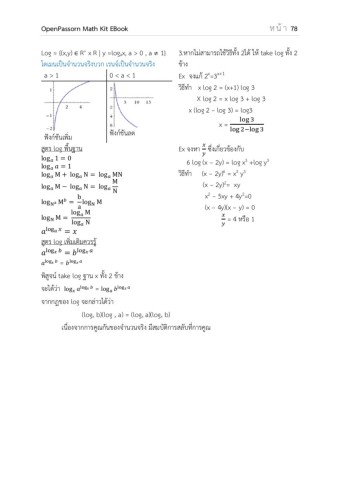 OpenPassorn Math Kit EBook
หน้า 78
Log = {(x,y) ∈ R⁺ x R | y =logₐx, a > 0 , a ≠ 1}
โดเมนเป็นจำนวนจริงบวก เรนจ์เป็นจำนวนจริง
a > 1
0 < a < 1
ฟังก์ชันเพิ่ม
ฟังก์ชันลด
สูตร log พื้นฐาน
logₐ 1 = 0
logₐ a = 1
logₐ M + logₐ N = logₐ MN
logₐ M − logₐ N = logₐ M/N
log_{Nᵃ} Mᵇ = b/a log_N M
log_N M = logₐ M / logₐ N
a^{logₐ x} = x
สูตร log เพิ่มเติมควรรู้
a^{logₓ b} = b^{logₓ a}
พิสูจน์ take log ฐาน x ทั้ง 2 ข้าง
จะได้ว่า logₓ a^{logₓ b} = logₓ b^{logₓ a}
จากกฎของ log จะกล่าวได้ว่า
(logₓ b)(logₓ , a) = (logₓ a)(logₓ b)
เนื่องจากการคูณกันของจำนวนจริง มีสมบัติการสลับที่การคูณ
3.หากไม่สามารถใช้วิธีทั้ง 2ได้ ให้ take log ทั้ง 2
ข้าง
Ex จงแก้ 2ˣ=3ˣ⁺¹
วิธีทำ x log 2 = (x+1) log 3
X log 2 = x log 3 + log 3
x (log 2 – log 3) = log3
x = log 3 / log 2−log 3
Ex จงหา x/y ซึ่งเกี่ยวข้องกับ
6 log (x – 2y) = log x³ +log y³
วิธีทำ (x – 2y)⁶ = x³ y³
(x – 2y)²= xy
x² – 5xy + 4y²=0
(x – 4y)(x – y) = 0
x/y = 4 หรือ 1